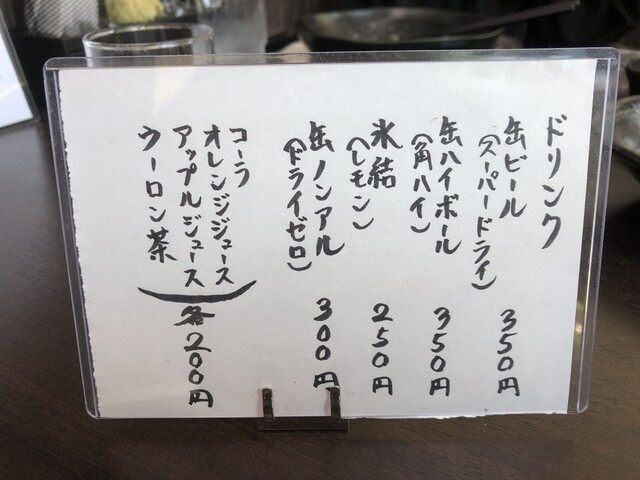 ドリンク
缶ビール
(スーパードライ) 350円
缶ハイボール
(角ハイ) 350円
氷結
(レモン) 250円
缶ノンアル
(ドライゼロ) 300円
コーラ
オレンジジュース
アップルジュース
ウーロン茶
各200円